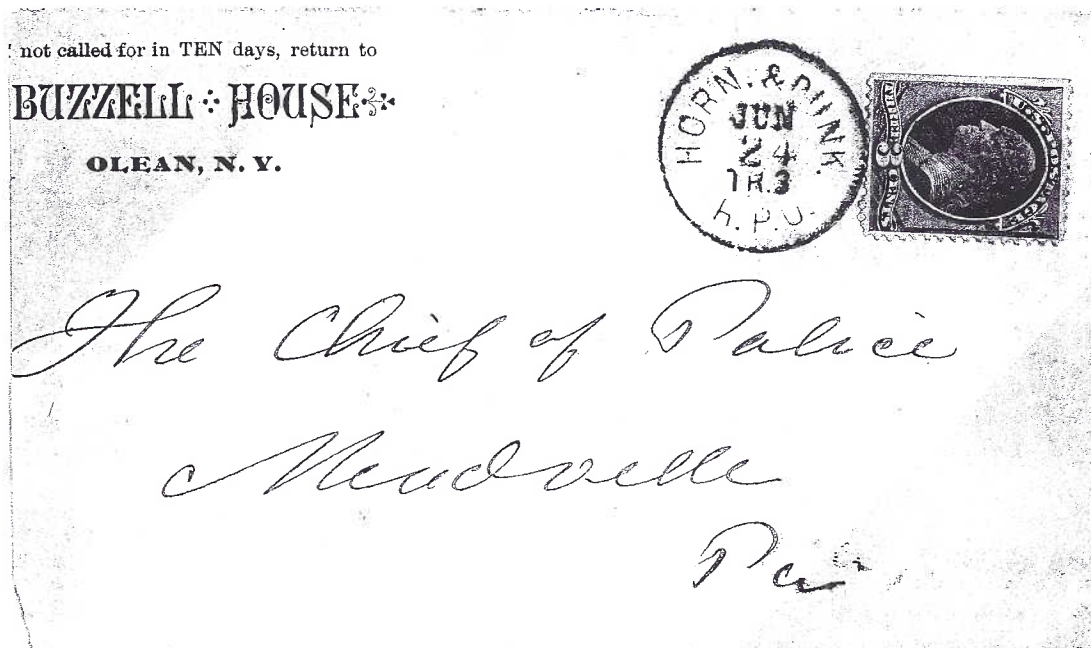 not called for in TEN days, return to
BUZZELL HOUSE
OLEAN, N. Y.
HORN. & DUNK.
JUN
24
TR.3
R.P.O.
U.S. POSTAGE
The Chief of Police
Meadville
Pa